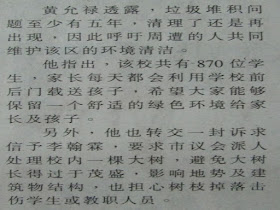 黄允禄透露，垃圾堆积问
题至少有五年，清理了还是再
出现，因此呼吁周遭的人共同
维护该区的环境清洁。
他指出，该校共有870位学
生，家长每天都会利用学校前
后门载送孩子，希望大家能够
保留一个舒适的绿色环境给家
长及孩子。
另外，他也转交一封诉求
信予李翰霖，要求市议会派人
处理校内一棵大树，避免大树
长得过于茂盛，影响地势及建
筑物结构，也担心树枝掉落击
伤学生或教职人员。